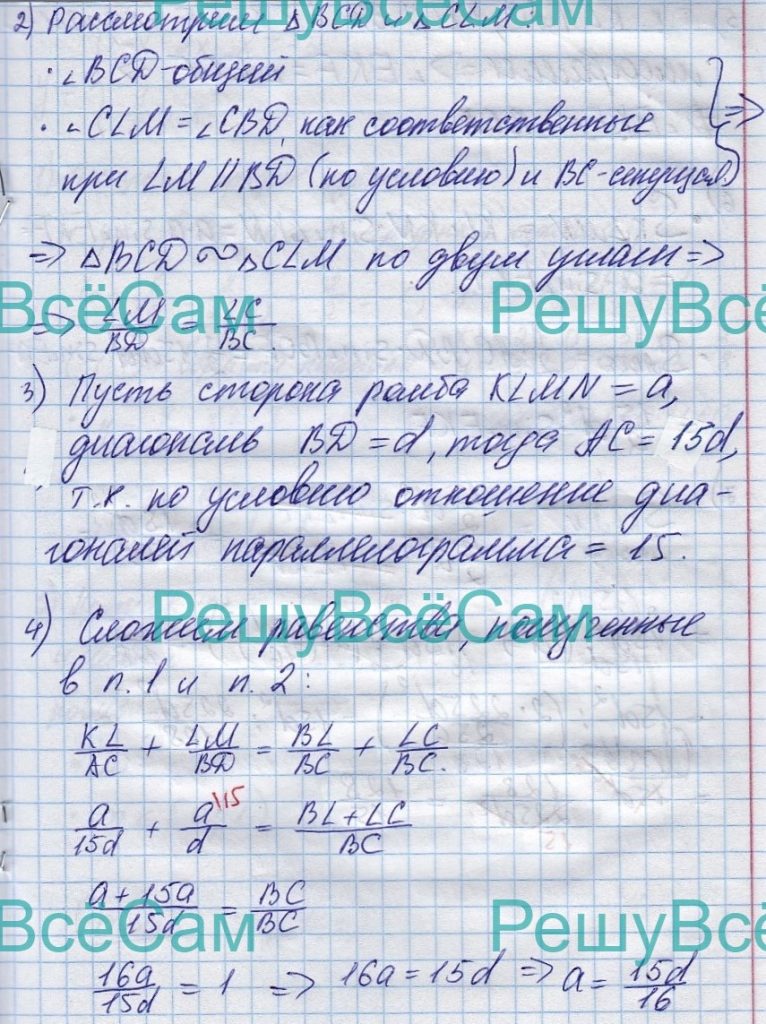 РешуВсёСам
2) Рассмотрим △BCD и △CLM.
· ∠BCD-общий
· ∠CLM = ∠CBD, как соответственные
при LM || BD (по условию) и BC-секущая
} =>
=> △BCD ∾ △CLM по двум углам =>
ВсёСам РешуВсё
=> LM/BD = LC/BC.
3) Пусть сторона ромба KLMN = a,
диагональ BD = d, тогда AC = 15d,
т.к. по условию отношение диа-
гоналей параллелограмма = 15.
РешуВсёСам
4) Сложим равенства, полученные
в п. 1 и п. 2:
KL/AC + LM/BD = BL/BC + LC/BC.
a/15d + a\15/d = BL + LC/BC
a + 15a/15d = BC/BC
ВсёСам РешуВсё
16a/15d = 1 => 16a = 15d => a = 15d/16